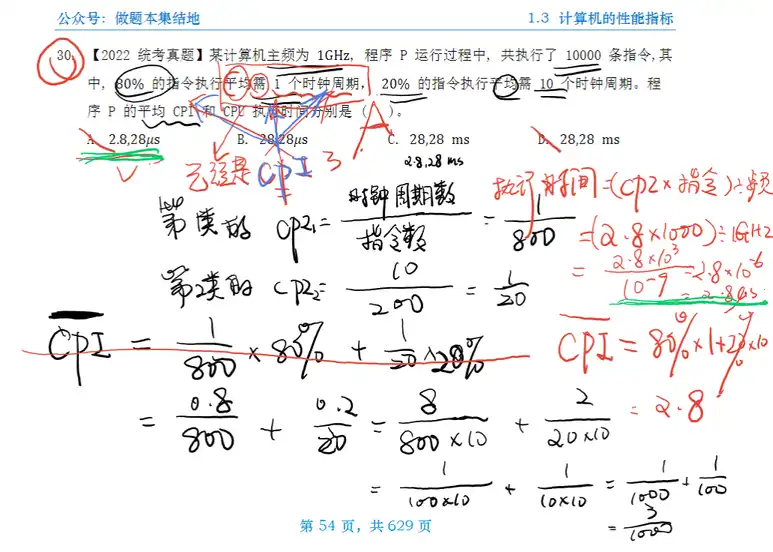 公众号：做题本集结地
1.3 计算机的性能指标
30. 【2022 统考真题】某计算机主频为 1GHz，程序 P 运行过程中，共执行了 10000 条指令,其
中，80% 的指令执行平均需 1 个时钟周期， 20% 的指令执行平均需 10 个时钟周期。程
序 P 的平均 CPI 和 CPU 执行时间分别是（ ）。
A. 2.8,28μs
B. 28,28μs
C. 28,28 ms
D. 28,28 ms
2.8,28 ms
A
CPI
第1类的 CPI₁= 时钟周期数 / 指令数 = 1 / 800
第2类的 CPI₂= 10 / 200 = 1 / 20
执行时间=(CPI×指令)÷频
=(2.8×1000)÷1GHz
= 2.8×10³ / 10-9 =2.8×10-6
CPI = 1/800 ×80% + 1/20 ×20%
CPI = 80%×1+20%×10
= 2.8
= 0.8/800 + 0.2/20 = 8/800×10 + 2/20×10
= 1/100×10 + 1/10×10 = 1/1000 + 1/100
= 3/1000
第 54 页，共 629 页